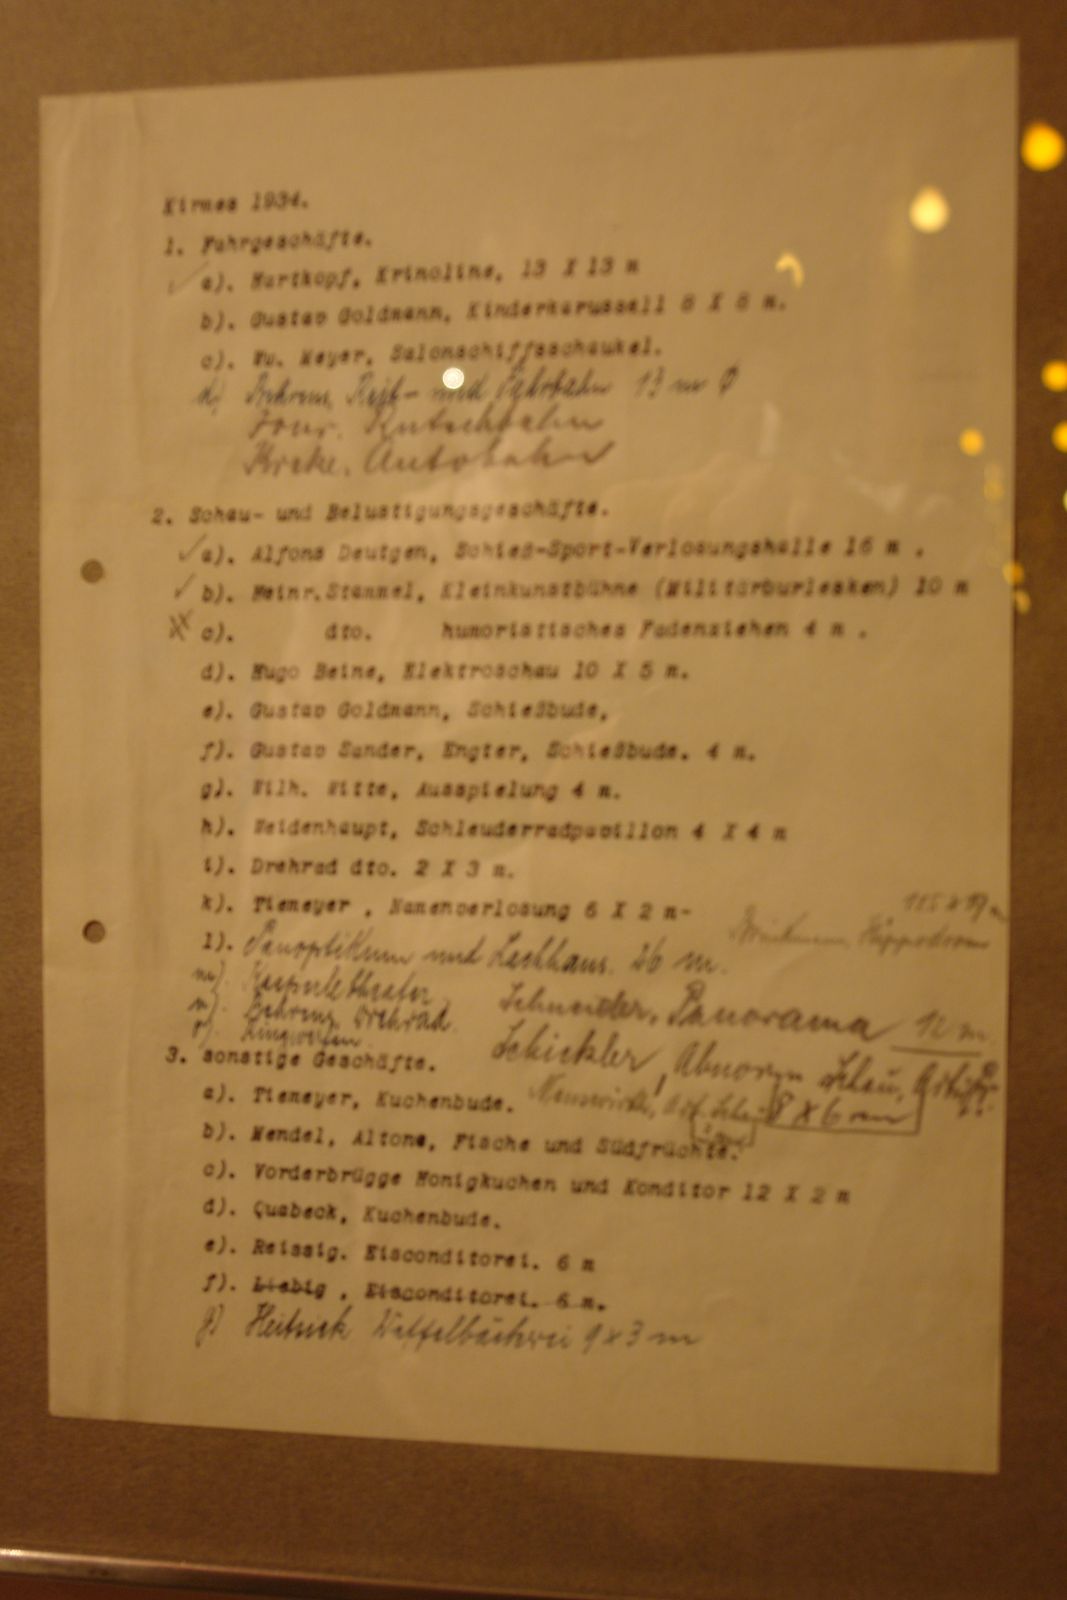 Kirmes 1934.
1. Fahrgeschäfte.
a). Hartkopf, Krinoline, 13 X 13 m
b). Gustav Goldmann, Kinderkarussell 8 X 8 m.
c). Ww. Meyer, Salonschiffsschaukel.
d) Reit- und Fahrbahn 13 m Ø
Rutschbahn
Autobahn
2. Schau- und Belustigungsgeschäfte.
a). Alfons Deutgen, Schieß-Sport-Verlosungshalle 16 m .
b). Heinr. Stammel, Kleinkunstbühne (Militärburlesken) 10 m
c). dto. humoristisches Fadenziehen 4 m .
d). Hugo Beine, Elektroschau 10 X 5 m.
e). Gustav Goldmann, Schießbude,
f). Gustav Sander, Engter, Schießbude. 4 m.
g). Wilh. Witte, Ausspielung 4 m.
h). Weidenhaupt, Schleuderradpavillon 4 X 4 m
i). Drehrad dto. 2 X 3 m.
k). Tiemeyer , Namenverlosung 6 X 2 m-
Hippodrom
l). Panoptikum und Lachhaus. 26 m.
m). Kasperletheater
Schneider, Panorama 12 m.
n). Behrens Drehrad.
Schickler, Schau,
3. sonstige Geschäfte.
8 X 6
a). Tiemeyer, Kuchenbude.
b). Mendel, Altona, Fische und Südfrüchte.
c). Vorderbrügge Honigkuchen und Konditor 12 X 2 m
d). Quabeck, Kuchenbude.
e). Reissig. Eisconditorei. 6 m
f). Liebig , Eisconditorei. 6 m.
g) Waffelbäckerei 9 x 3 m